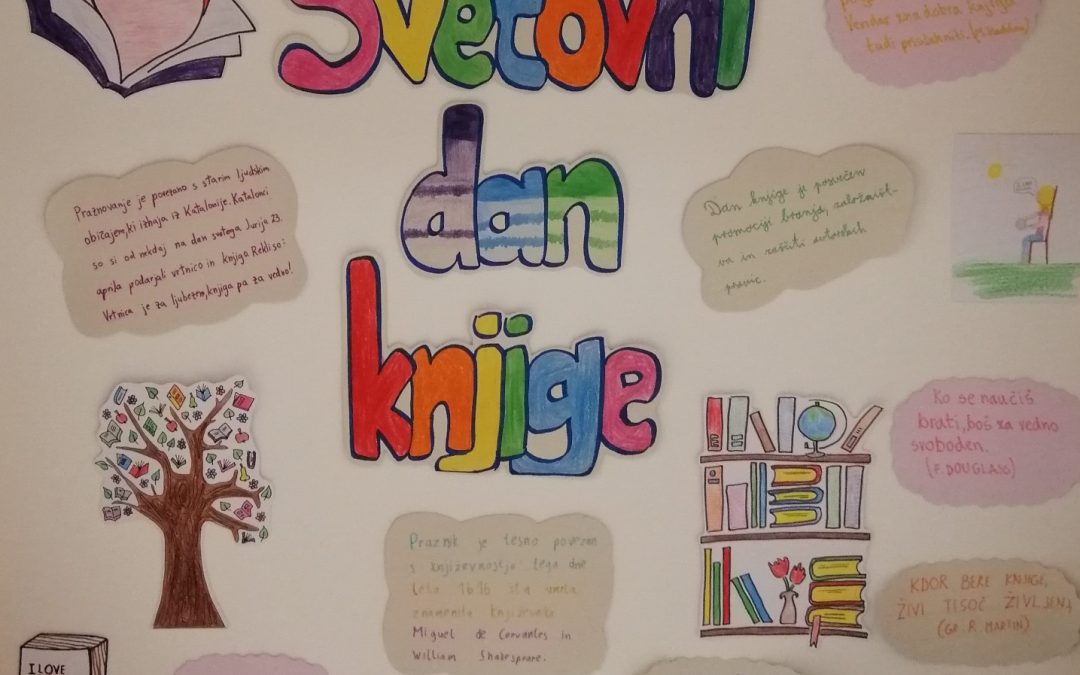 Svetovni
dan
knjige
Vendar zna dobra knjiga
tudi prisluhniti.
Praznovanje je povezano s starim ljudskim
običajem, ki izhaja iz Katalonije. Katalonci
so si od nekdaj na dan svetega Jurija 23.
aprila podarjali vrtnico in knjigo Rekli so:
Vrtnica je za ljubezen, knjiga pa za vedno!
Dan knjige je posvečen
promociji branja, založništ-
va in zaščiti avtorskih
pravic.
Ko se naučiš
brati, boš za vedno
svoboden.
(F. DOUGLASS)
Praznik je tesno povezan
s književnostjo tega dne
leta 1616 sta umrla
znamenita književnika
Miguel de Cervantes in
William Shakespeare.
KDOR BERE KNJIGE,
ŽIVI TISOČ ŽIVLJENJ
(G. R. MARTIN)
I LOVE